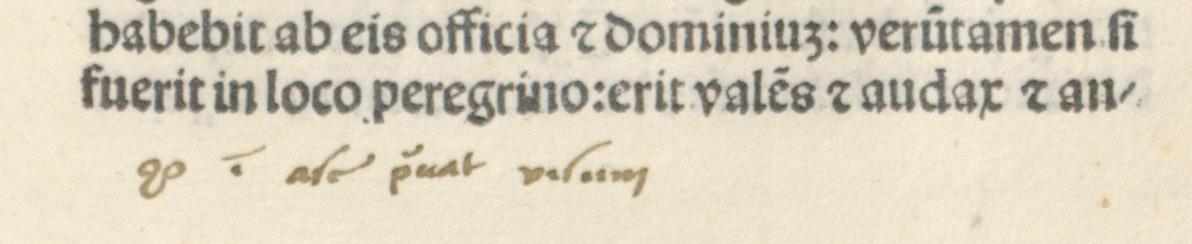 habebit ab eis officia ⁊ dominiuꝫ: verūtamen si
fuerit in loco peregrino:erit valēs ⁊ audax ⁊ an⸗
ī asc̄ p̄uat visum